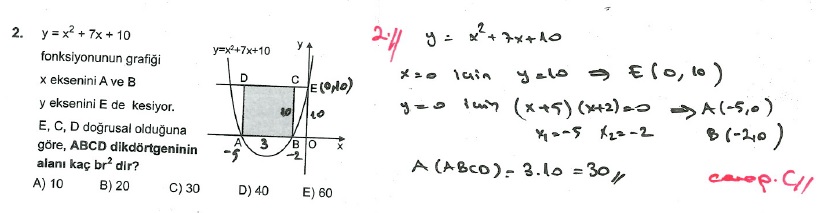 2. y = x² + 7x + 10
fonksiyonunun grafiği
x eksenini A ve B
y eksenini E de kesiyor.
E, C, D doğrusal olduğuna
göre, ABCD dikdörtgeninin
alanı kaç br² dir?
A) 10 B) 20 C) 30 D) 40 E) 60
y=x²+7x+10
y
D C E(0,10)
10 10
A 3 B O x
-5 -2
2-//
y = x²+7x+10
x=0 için y=10 ⇒ E(0,10)
y=0 için (x+5)(x+2)=0 ⇒ A(-5,0)
x₁=-5 x₂=-2 B(-2,0)
A(ABCD)= 3.10 = 30//
cevap. C//